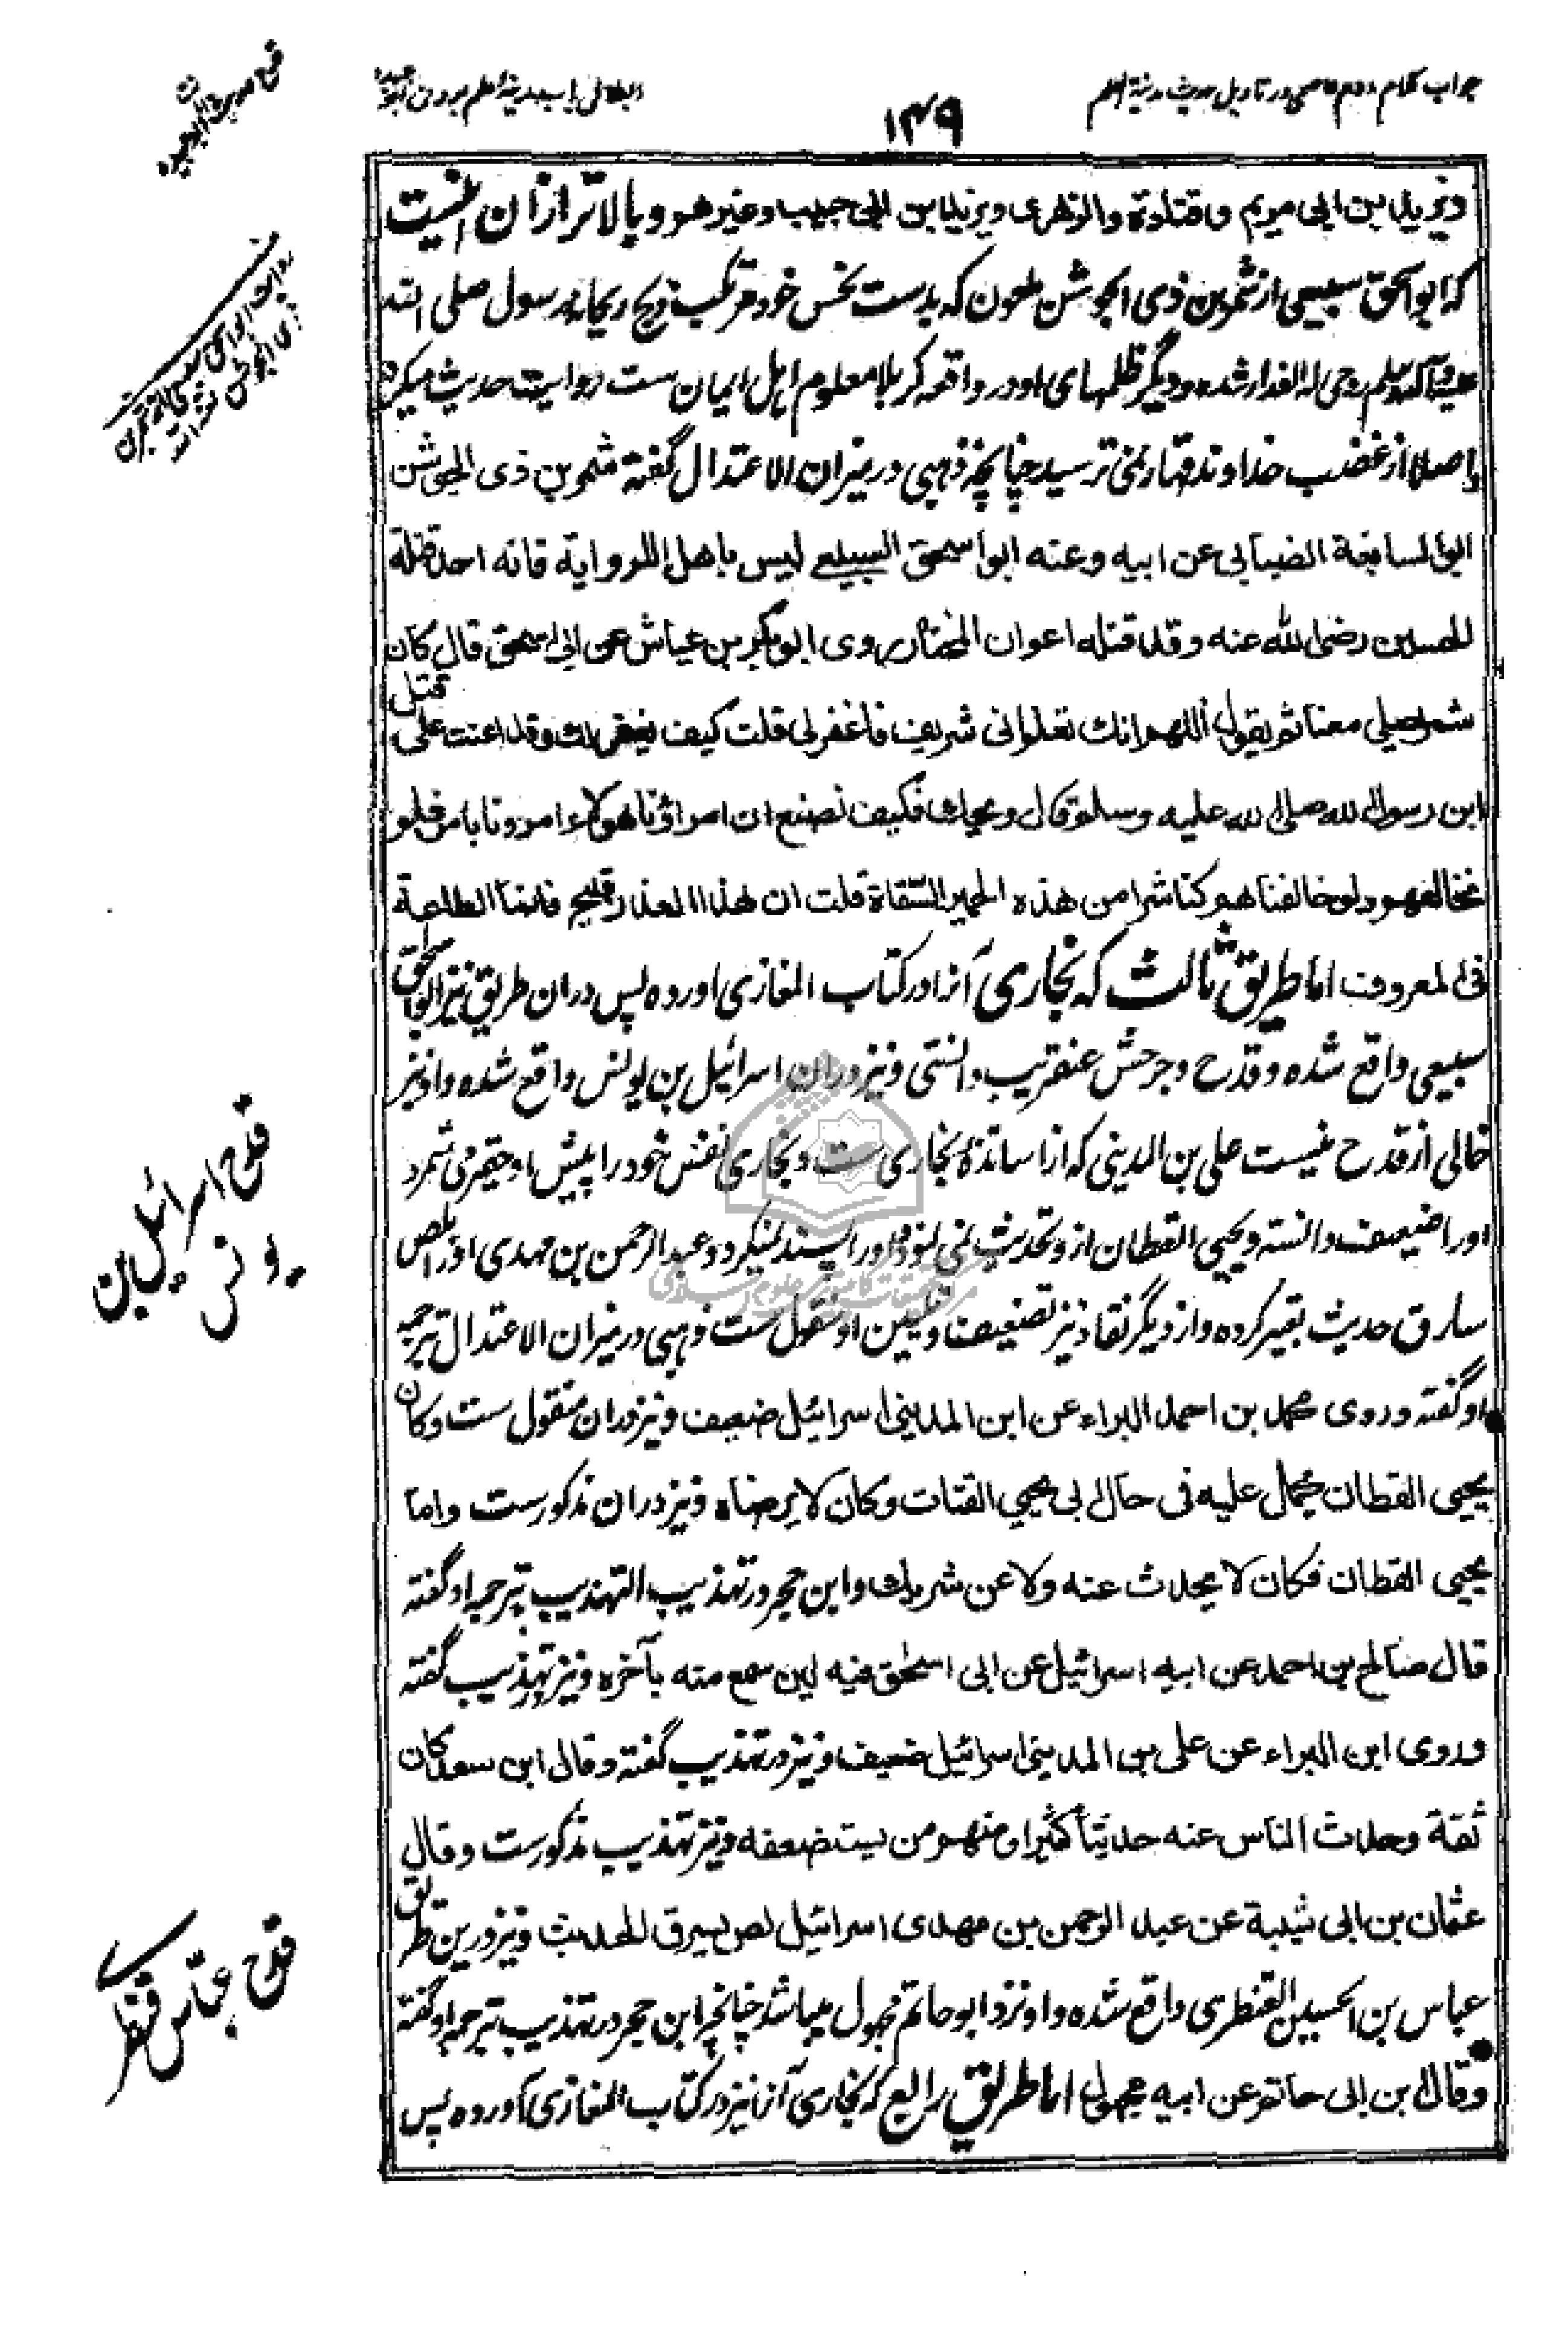 جواب کلام دوم عاصمی در تاویل حدیث مدینة العلم
۱۴۹
ابطال باب مدینة العلم بودن ابو عبیده
ویزید بن ابی مریم وقتادة والزهری ویزید بن ابی حبیب وغیرهم وبالاتر ازان اینست
که ابو اسحق سبیعی از شمر بن ذی الجوشن ملعون که بدست نحس خود مرتکب ذبح ریحانه رسول صلی الله
علیه وآله وسلم روحی له الفدا شده ودیگر ظلمهای او در واقعه کربلا معلوم اهل ایمان ست روایت حدیث میکرد
واصلا از غضب خداوند قهار نمی ترسید چنانچه ذهبی در میزان الاعتدال گفته شمر بن ذی الجوشن
ابو السابغة الضبابی عن ابیه وعنه ابو اسحق السبیعی لیس باهل للروایة فانه احد قتلة
الحسین رضی الله عنه وقد قتله اعوان المختار روی ابو بکر بن عیاش عن ابی اسحق قال کان
شمر یصلی معنا ثم یقول اللهم انك تعلم انی شریف فاغفر لی قلت کیف یغفر لك وقد اعنت علی قتل
ابن رسول الله صلی الله علیه وسلم قال ویحك فکیف نصنع ان امراؤنا هولاء امرونا بامر فلم
نخالفهم ولو خالفناهم کنا شرا من هذه الحمیر السقاة قلت ان هذا العذر قبیح فانما الطاعة
فی المعروف اما طریق ثالث که بخاری آنرا در کتاب المغازی آورده پس دران طریق نیز ابو اسحق
سبیعی واقع شده وقدح وجرحش عنقریب دانستی ونیز دران اسرائیل بن یونس واقع شده واو نیز
خالی از قدح نیست علی بن المدینی که از اساتذهٔ بخاری ست وبخاری نفس خود را پیش او حقیر می شمرد
او را ضعیف دانسته ویحیی القطان از و تحدیث نمی نمود واو را پسند نمیکرد وعبد الرحمن بن مهدی او را بلص
سارق حدیث تعبیر کرده واز دیگر نقاد نیز تضعیف وتلیین او منقول ست ذهبی در میزان الاعتدال بترجمه
او گفته وروی محمد بن احمد البراء عن ابن المدینی اسرائیل ضعیف ونیز دران منقول ست وکان
یحیی القطان یحمل علیه فی حال ابی یحیی القتات وکان لا یرضاه ونیز دران مذکورست واما
یحیی القطان فکان لا یحدث عنه ولا عن شریك وابن حجر در تهذیب التهذیب بترجمه او گفته
قال صالح بن احمد عن ابیه اسرائیل عن ابی اسحٰق فیه لین سمع منه بآخره ونیز در تهذیب گفته
وروی ابن البراء عن علی بن المدینی اسرائیل ضعیف ونیز در تهذیب گفته وقال ابن سعد کان
ثقة وحدث الناس عنه حدیثا کثیرا ومنهم من یستضعفه ونیز در تهذیب مذکورست وقال
عثمان بن ابی شیبة عن عبد الرحمن بن مهدی اسرائیل لص یسرق الحدیث ونیز درین طریق
عباس بن الحسین القنطری واقع شده واو نزد ابو حاتم مجهول میباشد چنانچه ابن حجر در تهذیب بترجمه او گفته
وقال ابن ابی حاتم عن ابیه مجهول اما طریق رابع که بخاری آنرا نیز در کتاب المغازی آورده پس
قدح اسرائیل بن
یونس
قدح عباس قنطری